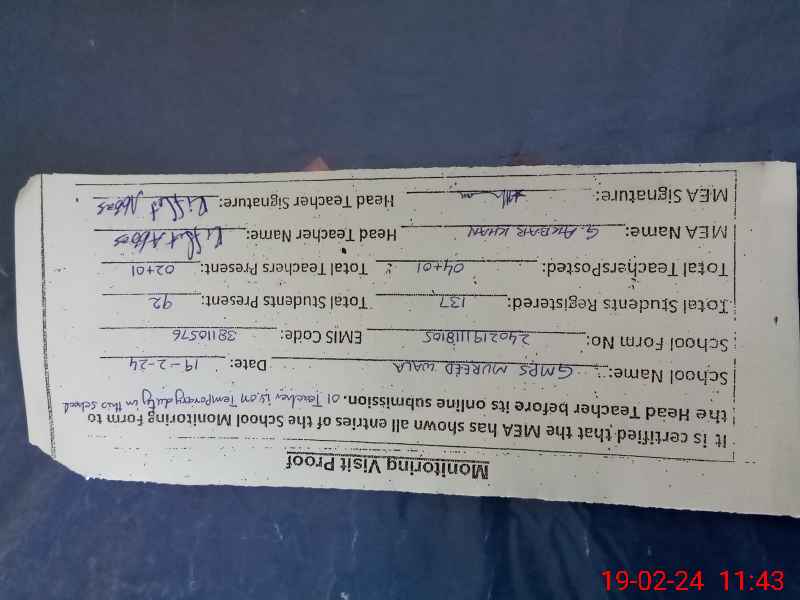 Monitoring Visit Proof
It is certified that the MEA has shown all entries of the School Monitoring Form to
the Head Teacher before its online submission. 01 Teacher is on Temporary duty in this school
School Name: GMPS MUREED WALA Date: 19-2-24
School Form No: 2402191118105 EMIS Code: 38110576
Total Students Registered: 137 Total Students Present: 92
Total TeachersPosted: 04+01 Total Teachers Present: 02+01
MEA Name: G. AKBAR KHAN Head Teacher Name: Riffat Abbas
MEA Signature: Head Teacher Signature: Riffat Abbas
19-02-24 11:43